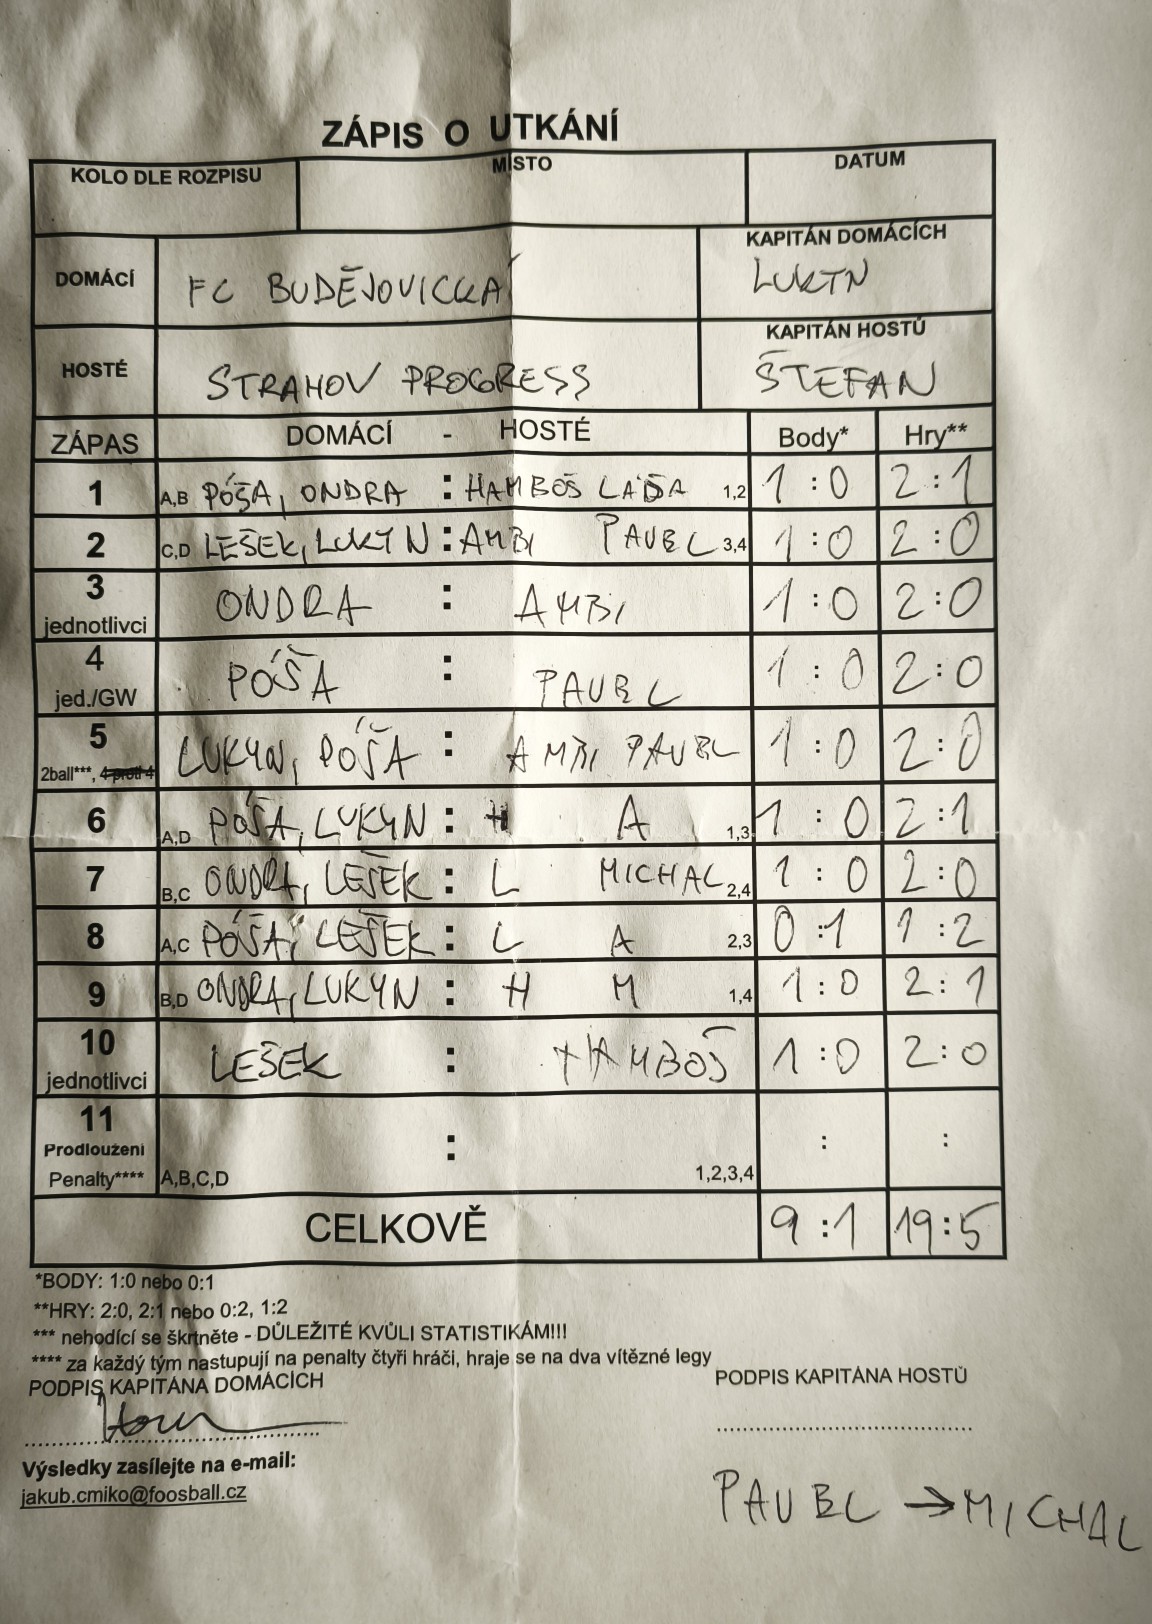 ZÁPIS O UTKÁNÍ
KOLO DLE ROZPISU MÍSTO DATUM
DOMÁCÍ FC BUDĚJOVICKÁ KAPITÁN DOMÁCÍCH LUKYN
HOSTÉ STRAHOV PROGRESS KAPITÁN HOSTŮ ŠTEFAN
ZÁPAS DOMÁCÍ - HOSTÉ Body* Hry**
1 A,B PÓŠA, ONDRA : HAMBOŠ LAĎA 1,2 1:0 2:1
2 C,D LEŠEK, LUKYN : AMBI PAVEL 3,4 1:0 2:0
3 jednotlivci ONDRA : AMBI 1:0 2:0
4 jed./GW PÓŠA : PAVEL 1:0 2:0
5 2ball***, 4 proti 4 LUKYN, PÓŠA : AMBI PAVEL 1:0 2:0
6 A,D PÓŠA, LUKYN : H A 1,3 1:0 2:1
7 B,C ONDRA, LEŠEK : L MICHAL 2,4 1:0 2:0
8 A,C PÓŠA, LEŠEK : L A 2,3 0:1 1:2
9 B,D ONDRA, LUKYN : H M 1,4 1:0 2:1
10 jednotlivci LEŠEK : HAMBOŠ 1:0 2:0
11 Prodloužení Penalty**** A,B,C,D : 1,2,3,4 : :
CELKOVĚ 9:1 19:5
*BODY: 1:0 nebo 0:1
**HRY: 2:0, 2:1 nebo 0:2, 1:2
*** nehodící se škrtněte - DŮLEŽITÉ KVŮLI STATISTIKÁM!!!
**** za každý tým nastupují na penalty čtyři hráči, hraje se na dva vítězné legy
PODPIS KAPITÁNA DOMÁCÍCH PODPIS KAPITÁNA HOSTŮ
Výsledky zasílejte na e-mail:
jakub.cmiko@foosball.cz
PAVEL → MICHAL